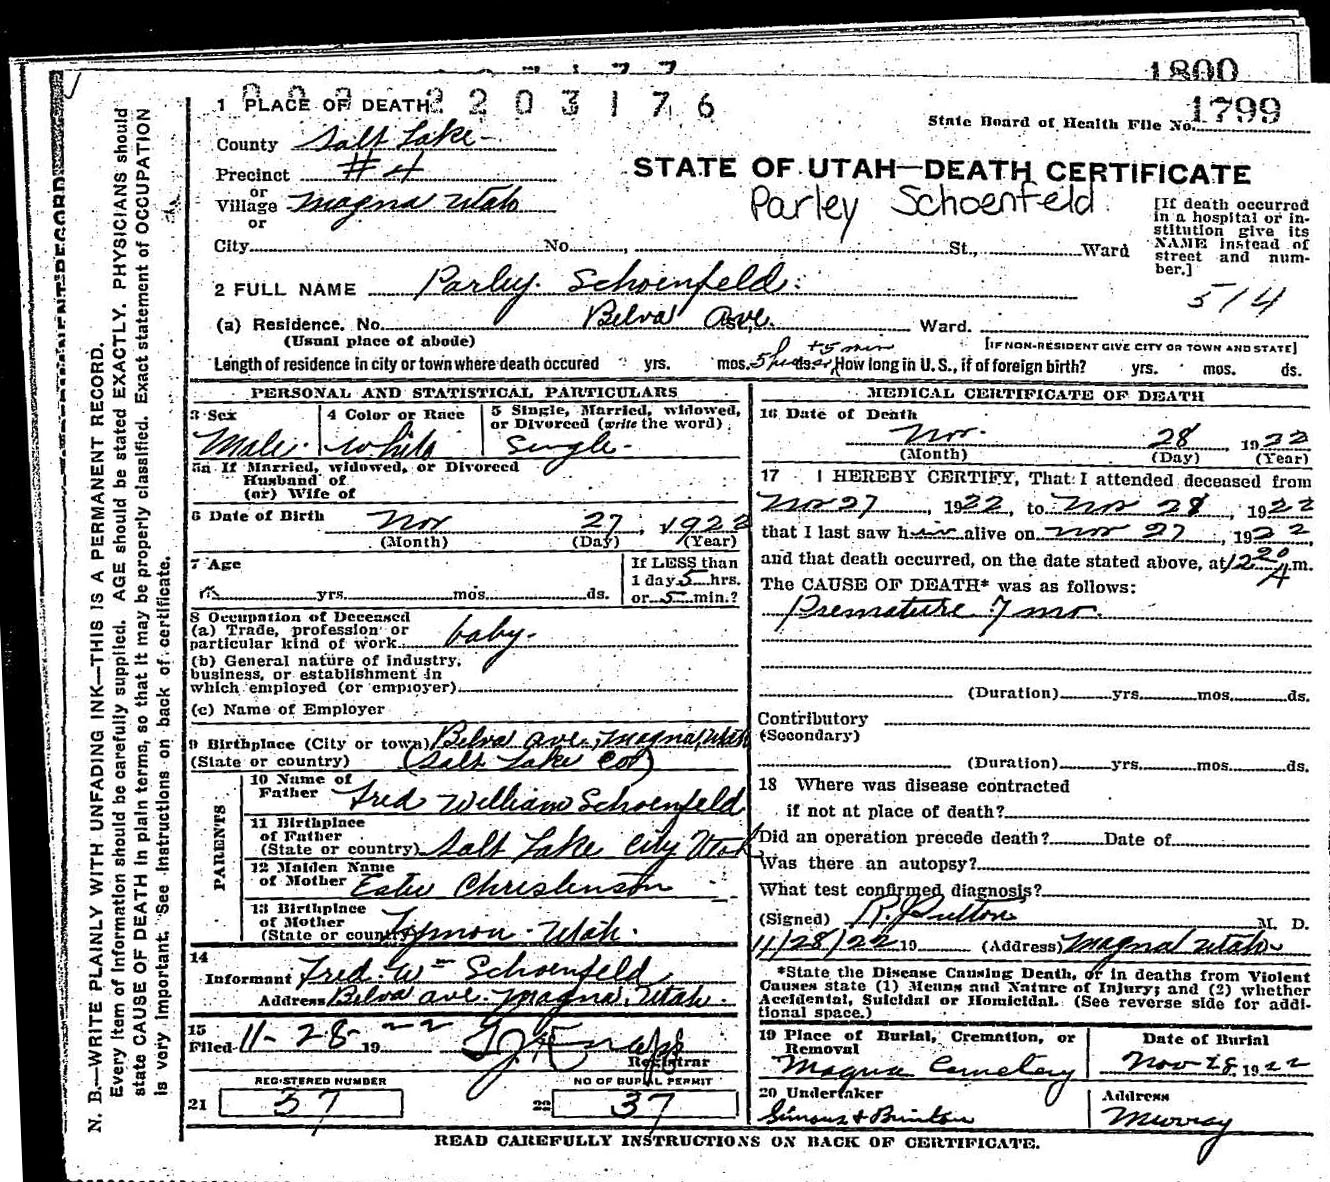 1800
1799
2203176
1 PLACE OF DEATH
State Board of Health File No.
County Salt Lake
Precinct #4
or
Village Magna Utah
or
City No. St., Ward
STATE OF UTAH—DEATH CERTIFICATE
Parley Schoenfeld
[If death occurred in a hospital or in-
stitution give its
NAME instead of
street and num-
ber.]
514
2 FULL NAME Parley Schoenfeld
(a) Residence. No. Belva Ave. Ward.
(Usual place of abode)
[IF NON-RESIDENT GIVE CITY OR TOWN AND STATE]
Length of residence in city or town where death occured yrs. mos. 5 hrs + 5 min ds. How long in U. S., if of foreign birth? yrs. mos. ds.
PERSONAL AND STATISTICAL PARTICULARS
3 Sex
Male
4 Color or Race
White
5 Single, Married, widowed,
or Divorced (write the word)
Single
5a If Married, widowed, or Divorced
Husband of
(or) Wife of
6 Date of Birth Nov 27, 1922
(Month) (Day) (Year)
7 Age
yrs. mos. ds.
If LESS than
1 day 5 hrs.
or 5 min.?
8 Occupation of Deceased
(a) Trade, profession or
particular kind of work baby
(b) General nature of industry,
business, or establishment in
which employed (or employer)
(c) Name of Employer
9 Birthplace (City or town) Belva Ave., Magna, Utah
(State or country) (Salt Lake Co)
PARENTS
10 Name of
Father Fred William Schoenfeld
11 Birthplace
of Father
(State or country) Salt Lake City Utah
12 Maiden Name
of Mother Christenson
13 Birthplace
of Mother
(State or country) Lymon Utah.
14
Informant Fred Wm Schoenfeld
Address Belva ave. Magna, Utah.
15
Filed 11-28-22 19
Registrar
REGISTERED NUMBER
21 37
NO OF BURIAL PERMIT
22 37
MEDICAL CERTIFICATE OF DEATH
16 Date of Death
Nov. 28 1922
(Month) (Day) (Year)
17 I HEREBY CERTIFY, That I attended deceased from
Nov 27, 1922, to Nov 28, 1922
that I last saw him alive on Nov 27, 1922,
and that death occurred, on the date stated above, at 12 20 A m.
The CAUSE OF DEATH* was as follows:
Premature 7 mo.
(Duration) yrs. mos. ds.
Contributory
(Secondary)
(Duration) yrs. mos. ds.
18 Where was disease contracted
if not at place of death?
Did an operation precede death? Date of
Was there an autopsy?
What test confirmed diagnosis?
(Signed) M. D.
11/28/22 19 (Address) Magna Utah
*State the Disease Causing Death, or in deaths from Violent
Causes state (1) Means and Nature of Injury; and (2) whether
Accidental, Suicidal or Homicidal. (See reverse side for addi-
tional space.)
19 Place of Burial, Cremation, or
Removal
Magna Cemetery
Date of Burial
Nov 28, 1922
20 Undertaker
Address
Murray
READ CAREFULLY INSTRUCTIONS ON BACK OF CERTIFICATE.
N. B.—WRITE PLAINLY WITH UNFADING INK—THIS IS A PERMANENT RECORD.
Every item of information should be carefully supplied. AGE should be stated EXACTLY. PHYSICIANS should
state CAUSE OF DEATH in plain terms, so that it may be properly classified. Exact statement of OCCUPATION
is very important. See instructions on back of certificate.